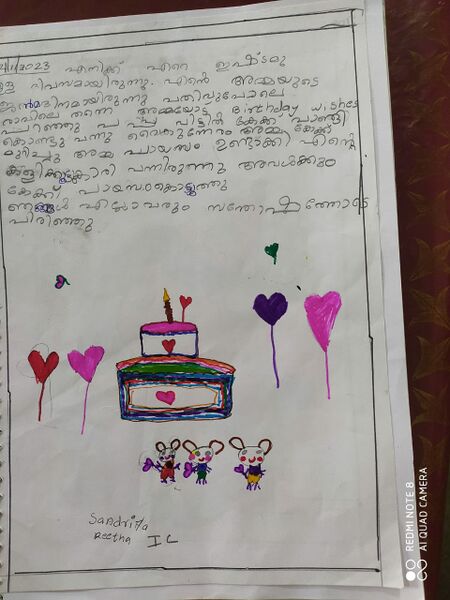 2/1/2023 എനിക്ക് ഏറെ ഇഷ്ടമു
ള്ള ദിവസമായിരുന്നു. എൻ്റെ അമ്മയുടെ
ജന്മദിനമായിരുന്നു പതിവുപോലെ
രാവിലെ തന്നെ അമ്മയോട് Birthday wishes
പറഞ്ഞു പപ്പ വീട്ടിൽ കേക്ക് വാങ്ങി
കൊണ്ടു വന്നു വൈകുന്നേരം അമ്മ കേക്ക്
മുറിച്ചു അമ്മ പായസം ഉണ്ടാക്കി എൻ്റെ
കളിക്കൂട്ടുക്കാരി വന്നിരുന്നു അവൾക്കും
കേക്ക് പായസംകൊടുത്തു
ഞങ്ങൾ എല്ലാവരും സന്തോഷത്തോടെ
പിരിഞ്ഞു
Sandriya
Reetha I C
REDMI NOTE 8
AI QUAD CAMERA